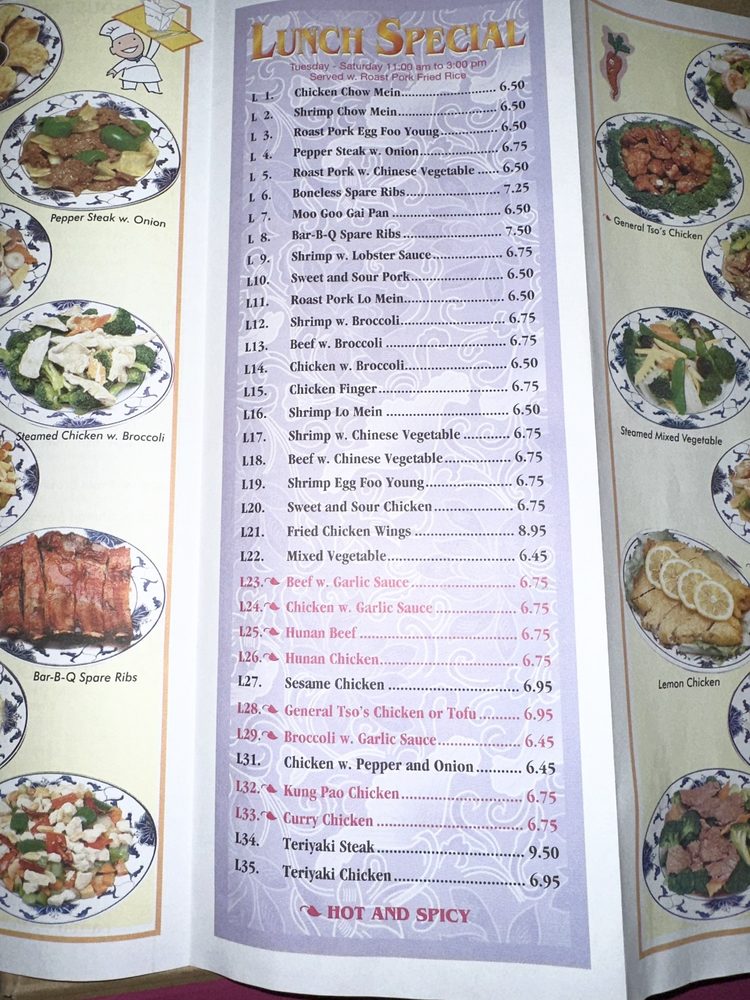 LUNCH SPECIAL
Tuesday - Saturday 11:00 am to 3:00 pm
Served w. Roast Pork Fried Rice
L 1. Chicken Chow Mein 6.50
L 2. Shrimp Chow Mein 6.50
L 3. Roast Pork Egg Foo Young 6.50
L 4. Pepper Steak w. Onion 6.75
L 5. Roast Pork w. Chinese Vegetable 6.50
L 6. Boneless Spare Ribs 7.25
L 7. Moo Goo Gai Pan 6.50
L 8. Bar-B-Q Spare Ribs 7.50
L 9. Shrimp w. Lobster Sauce 6.75
L10. Sweet and Sour Pork 6.50
L11. Roast Pork Lo Mein 6.50
L12. Shrimp w. Broccoli 6.75
L13. Beef w. Broccoli 6.75
L14. Chicken w. Broccoli 6.50
L15. Chicken Finger 6.75
L16. Shrimp Lo Mein 6.50
L17. Shrimp w. Chinese Vegetable 6.75
L18. Beef w. Chinese Vegetable 6.75
L19. Shrimp Egg Foo Young 6.75
L20. Sweet and Sour Chicken 6.75
L21. Fried Chicken Wings 8.95
L22. Mixed Vegetable 6.45
L23. Beef w. Garlic Sauce 6.75
L24. Chicken w. Garlic Sauce 6.75
L25. Hunan Beef 6.75
L26. Hunan Chicken 6.75
L27. Sesame Chicken 6.95
L28. General Tso's Chicken or Tofu 6.95
L29. Broccoli w. Garlic Sauce 6.45
L31. Chicken w. Pepper and Onion 6.45
L32. Kung Pao Chicken 6.75
L33. Curry Chicken 6.75
L34. Teriyaki Steak 9.50
L35. Teriyaki Chicken 6.95
HOT AND SPICY
Pepper Steak w. Onion
Steamed Chicken w. Broccoli
Bar-B-Q Spare Ribs
General Tso's Chicken
Steamed Mixed Vegetable
Lemon Chicken